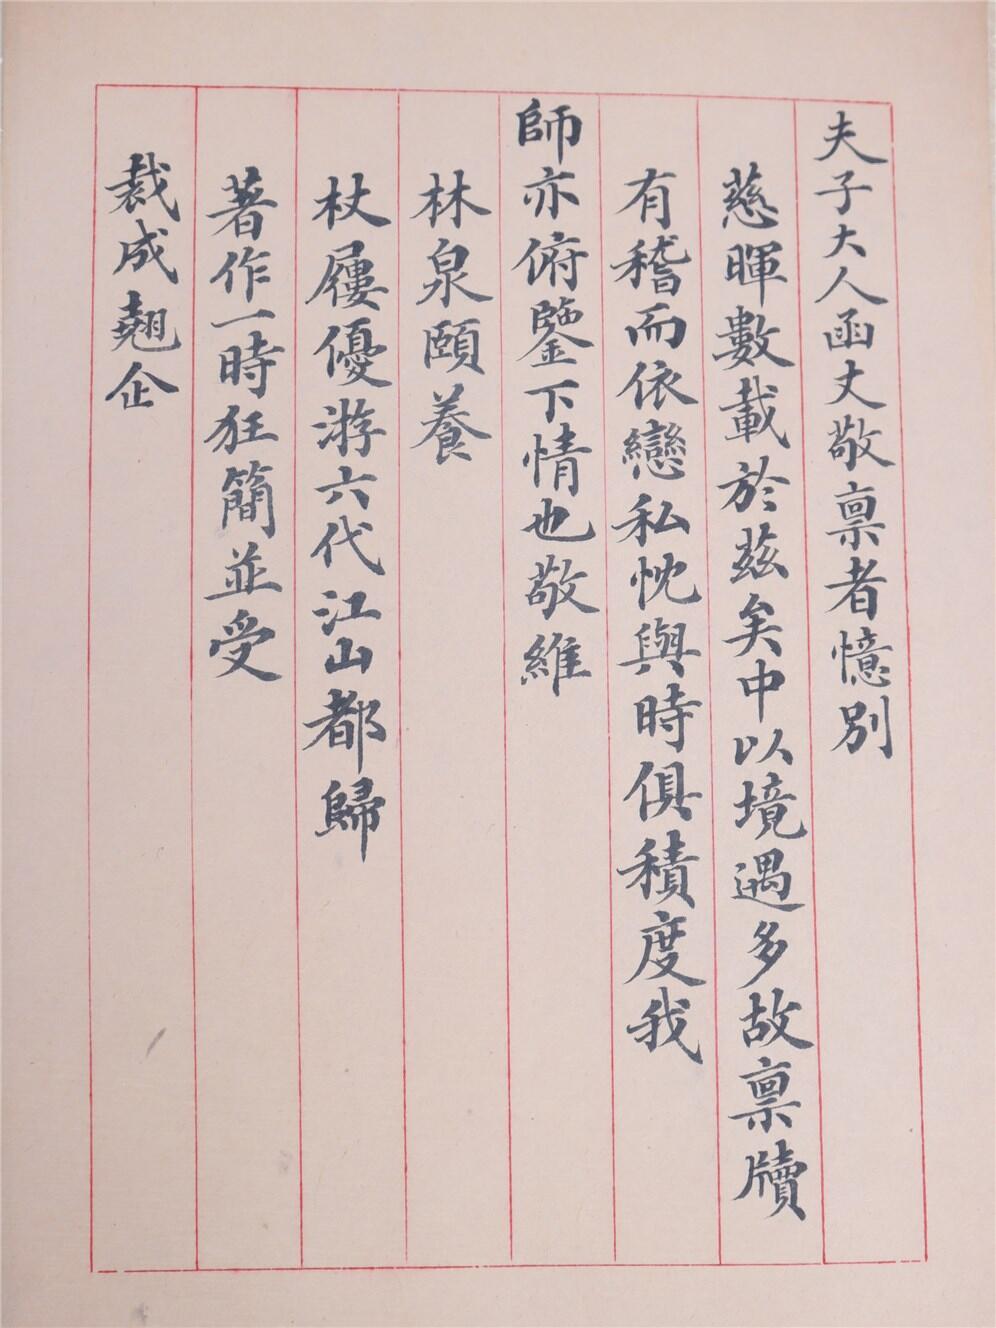 夫子大人函丈敬禀者憶別
慈暉數載於茲矣中以境遇多故禀牘
有稽而依戀私忱與時俱積度我
師亦俯鑒下情也敬維
林泉頤養
杖屨優游六代江山都歸
著作一時狂簡並受
裁成翹企